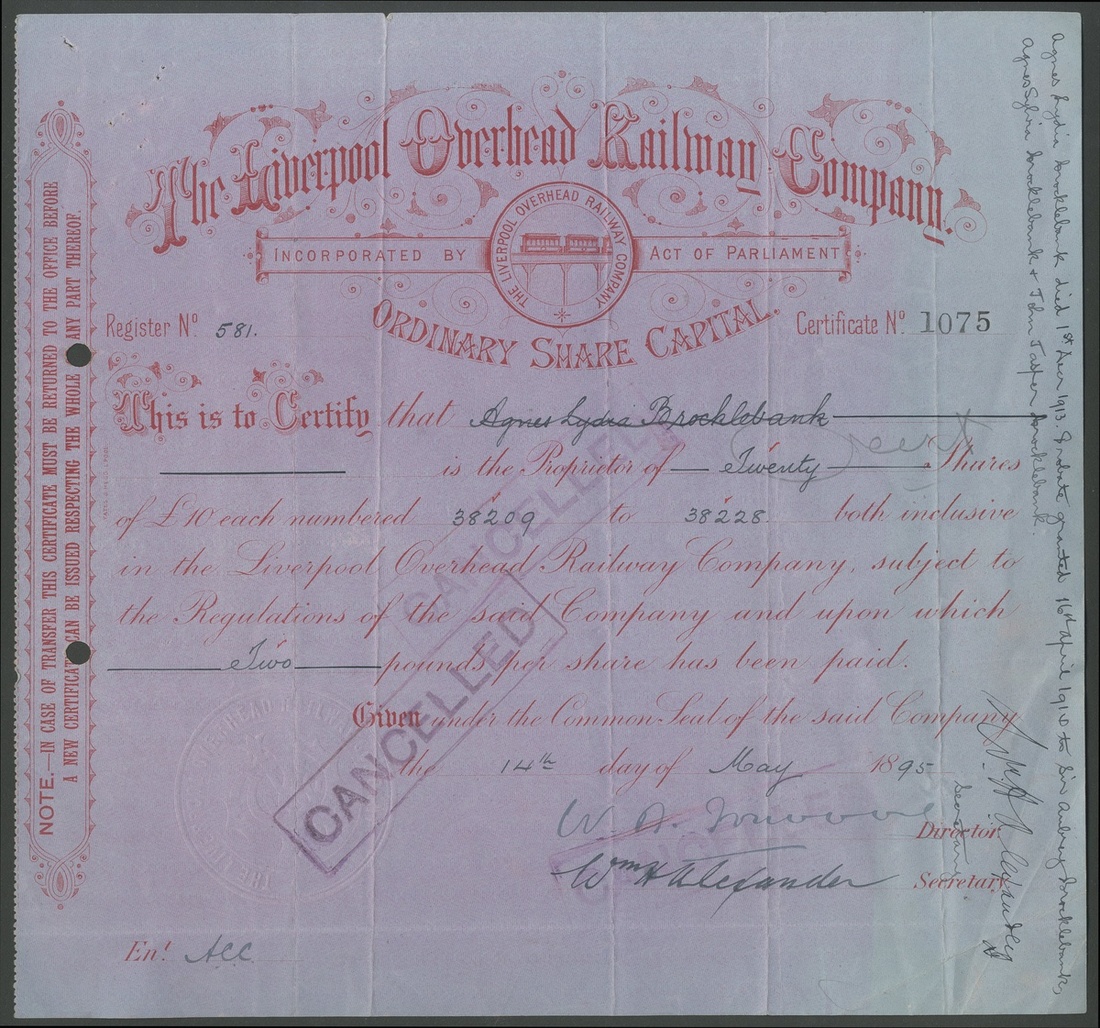 The Liverpool Overhead Railway Company.
INCORPORATED BY ACT OF PARLIAMENT
THE LIVERPOOL OVERHEAD RAILWAY COMPANY
ORDINARY SHARE CAPITAL.
Register No 581.
Certificate No 1075
This is to Certify that Agnes Lydia Brocklebank
is the Proprietor of Twenty Shares
of £10 each numbered 38209 to 38228 both inclusive
in the Liverpool Overhead Railway Company, subject to
the Regulations of the said Company and upon which
Two pounds per share has been paid.
Given under the Common Seal of the said Company
the 14th day of May 1895
Director
Wm H Alexander Secretary
Ent. ACC
CANCELLED
CANCELLED
CANCELLED
NOTE.—IN CASE OF TRANSFER THIS CERTIFICATE MUST BE RETURNED TO THE OFFICE BEFORE
A NEW CERTIFICATE CAN BE ISSUED RESPECTING THE WHOLE OR ANY PART THEREOF.
Agnes Lydia Brocklebank died 1st Decr 1913. Probate granted 16th April 1914 to Sir Aubrey Brocklebank,
Agnes Sylvia Brocklebank & John Jasper Brocklebank.
Wm H Alexander
Secretary